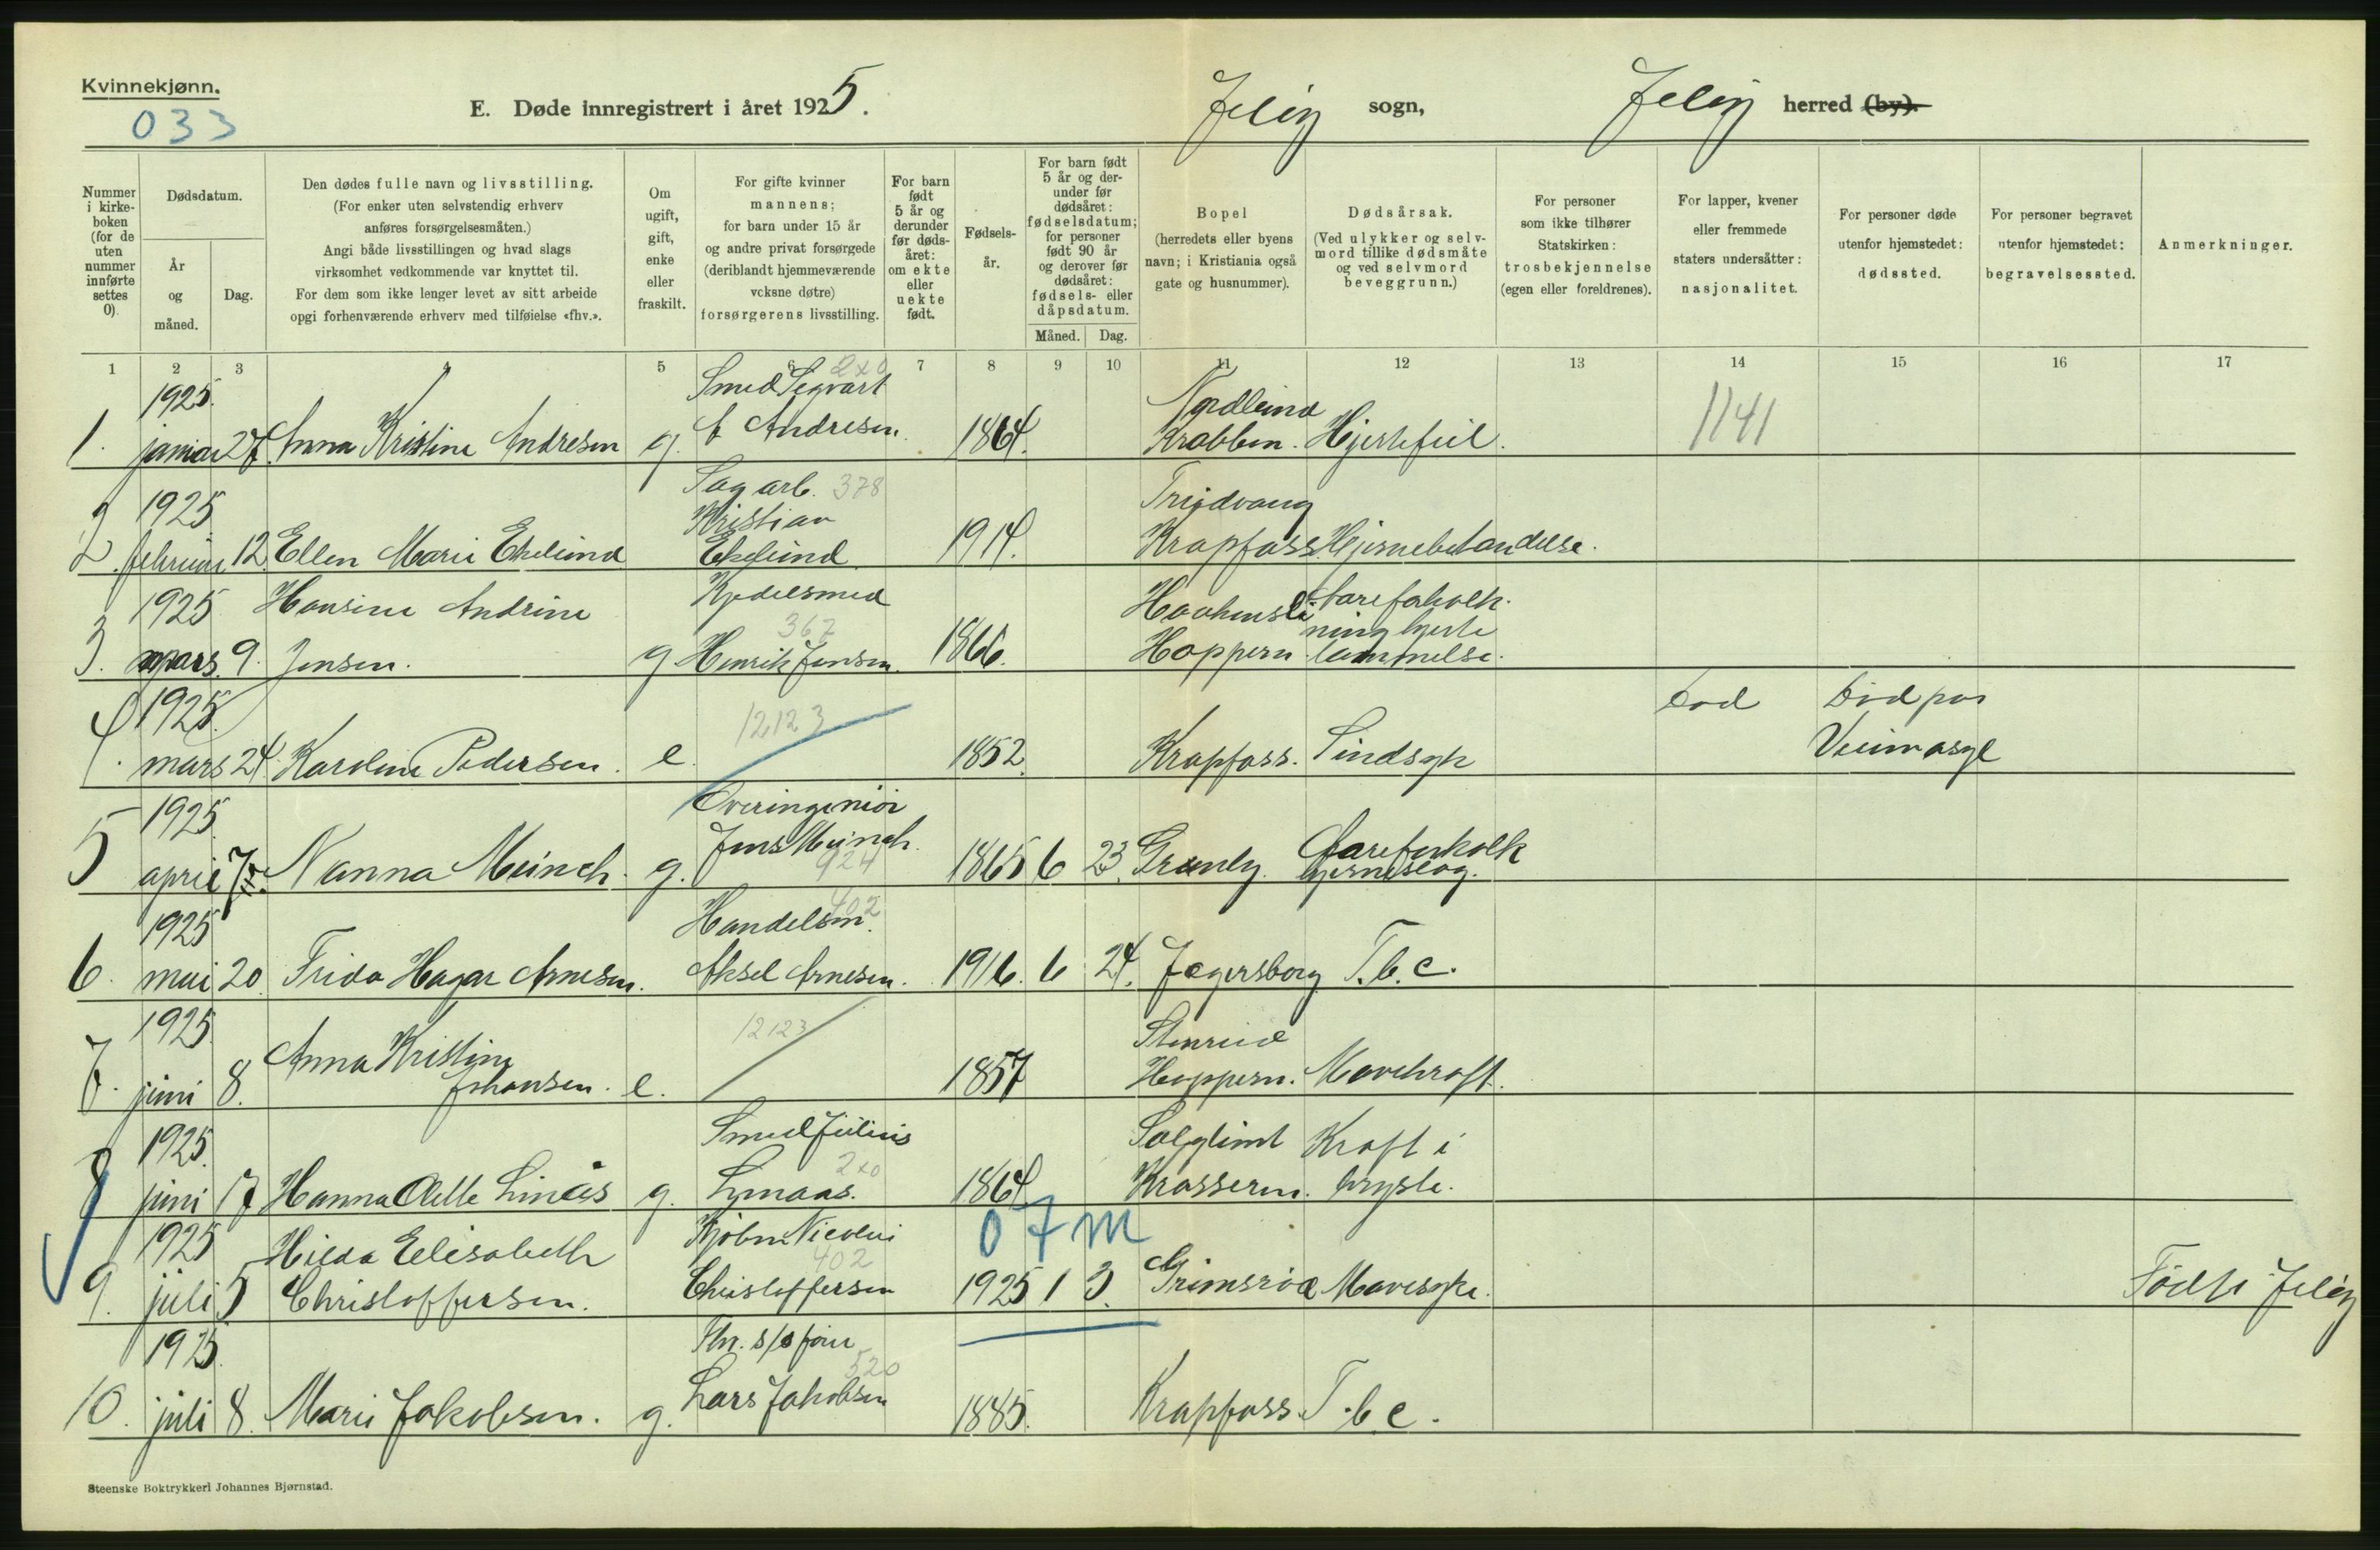 Kvinnekjønn.
033
E. Døde innregistrert i året 1925.
Jeløy sogn,
Jeløy herred (by).
Nummer i kirke-boken (for de uten nummer innførte settes 0).
Dødsdatum.
År og måned.
Dag.
Den dødes fulle navn og livsstilling.
(For enker uten selvstendig erhverv
anføres forsørgelsesmåten.)
Angi både livsstillingen og hvad slags
virksomhet vedkommende var knyttet til.
For dem som ikke lenger levet av sitt arbeide
opgi forhenværende erhverv med tilføielse «fhv.».
Om ugift, gift, enke eller fraskilt.
For gifte kvinner
mannens;
for barn under 15 år
og andre privat forsørgede
(deriblandt hjemmeværende
voksne døtre)
forsørgerens livsstilling.
For barn født 5 år og derunder før døds-året: om ekte eller uekte født.
Fødsels-år.
For barn født 5 år og der-under før dødsåret: fødselsdatum; for personer født 90 år og derover før dødsåret: fødsels- eller dåpsdatum.
Måned. Dag.
Bopel
(herredets eller byens
navn; i Kristiania også
gate og husnummer).
Dødsårsak.
(Ved ulykker og selv-
mord tillike dødsmåte
og ved selvmord
beveggrunn.)
For personer
som ikke tilhører
Statskirken:
trosbekjennelse
(egen eller foreldrenes).
For lapper, kvener
eller fremmede
staters undersåtter:
nasjonalitet.
For personer døde
utenfor hjemstedet:
dødssted.
For personer begravet
utenfor hjemstedet:
begravelsessted.
Anmerkninger.
1 2 3 5 6 7 8 9 10 11 12 13 14 15 16 17
1925. Smed Sigvart 220 Nordlund
1. januar 27. Anna Kristine Andresen g. A Andresen. 1864. Krabben. Hjertefeil. 1141
1925 Sag arb. 378 Trudvang
Kristian
2. februar 12. Ellen Marie Ekelund Ekelund. 1914. Krapfoss. Hjernebetændelse.
1925 Hansine Andrine Kjedelsmed
367
3. mars. 9. Jensen. g Henrik Jensen. 1866. Hoppern lammelse.
1925. 12123 Død på
4. mars 24. Karoline Pedersen. e 1852. Krapfoss. Sindsyk
1925. Overingeniør
5 april 7. Nanna Münch. g. Jens Münch. 924 1865 6 23. Grønly. Åreforkalk hjerneslag.
1925 Handelsm. 402
6. mai 20. Frida Hagar Arnesen. Aksel Arnesen. 1916. 6 24. Jægersborg T.b.c.
1925 Anna Kristine 12123 Stenrød
7. juni 8. Johansen. e. 1857 Hoppern. Mavekræft.
1925. Smed Julius Solglimt Kræft i
8 juni 17 Hanna Lināās g. Lynaas. 220 1864 Krosseren. bryste.
1925 Hilda Elisabeth Kjøbm. Nicolai 402 0 7 m
9. juli 5 Christoffersen. Christoffersen 1925 1 3. Grimsrød Mavesyke. Født i Jeløy
1925. 520
10. juli 8. Marie Jakobsen. g. Lars Jakobsen 1885. Krapfoss. T.b.c.
Steenske Boktrykkeri Johannes Bjørnstad.